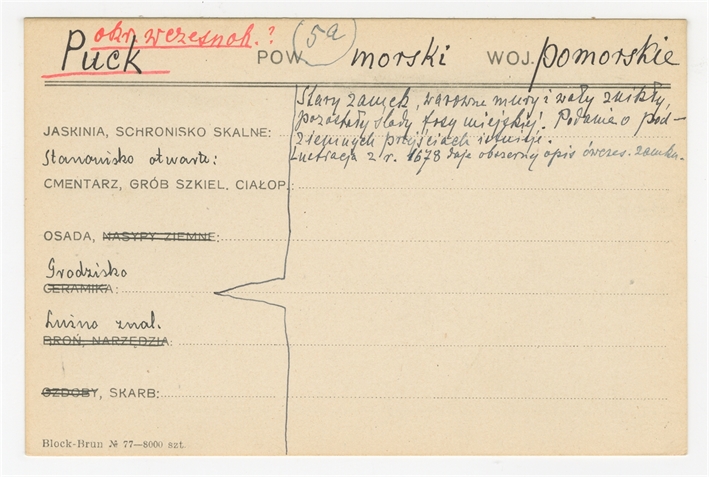 okr. wczesnoh.?
Puck POW. morski WOJ. pomorskie
5a
Stary zamek, warowne mury i wały znikły,
pozostały ślady fosy miejskiej. Podania o pod-
ziemnych przejściach istnieje.
Lustracja z r. 1678 daje obszerny opis ówczes. zamku.
JASKINIA, SCHRONISKO SKALNE:
Stanowisko otwarte:
CMENTARZ, GRÓB SZKIEL. CIAŁOP.:
OSADA, NASYPY ZIEMNE:
Grodzisko
CERAMIKA:
Luźno znal.
BROŃ, NARZĘDZIA:
OZDOBY, SKARB:
Block-Brun № 77—8000 szt.